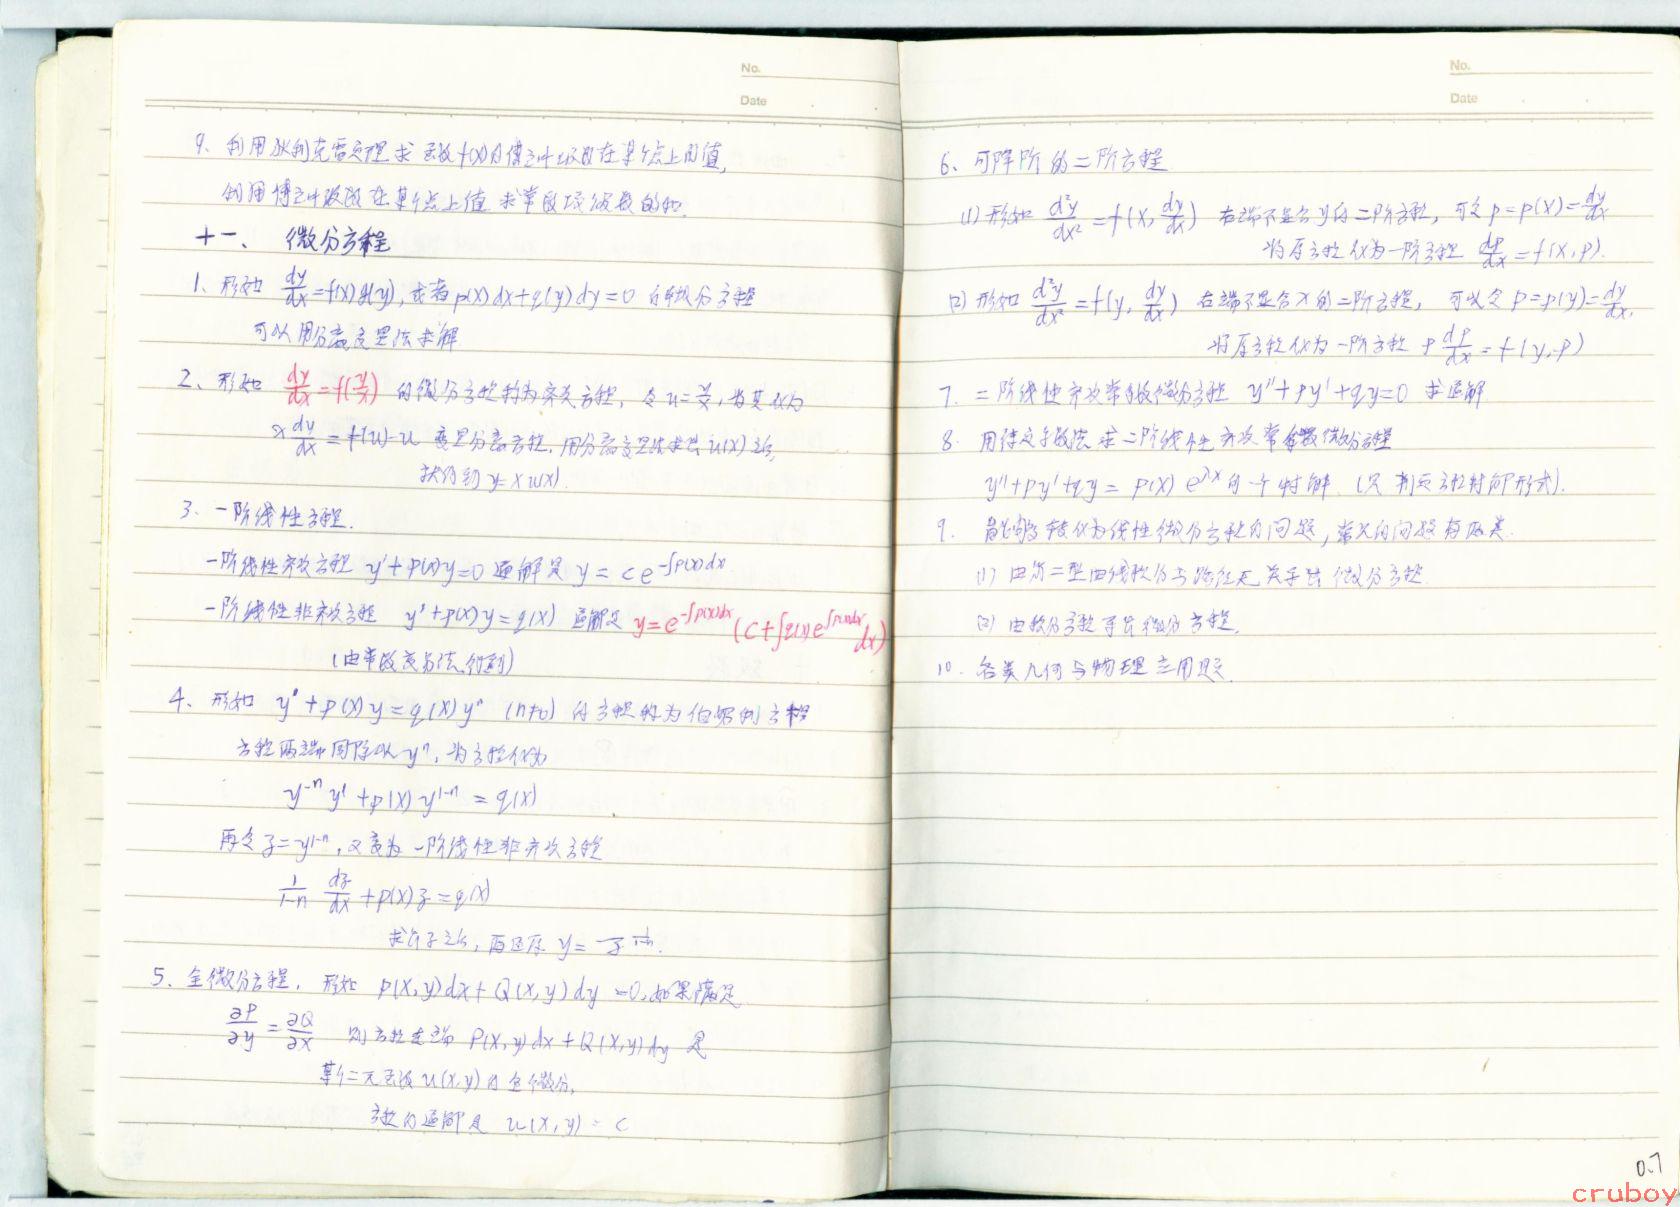 No.
Date
9、利用狄利克雷定理求函数f(x)的傅立叶级数在某个点上的值,
利用傅立叶级数在某个点上值求常数项级数的和.
十一、微分方程
1、形如 dy/dx=f(x)g(y), 或者p(x)dx+q(y)dy=0 的微分方程
可以用分离变量法求解
2、形如 dy/dx=f(y/x) 的微分方程称为齐次方程, 令u=y/x, 将其化为
x dy/dx = f(u)-u 变量分离方程, 用分离变量法求出u(x)之后,
就得到 y=xu(x).
3、一阶线性方程.
一阶线性齐次方程 y'+p(x)y=0 通解是 y=ce^{-∫p(x)dx}
一阶线性非齐次方程 y'+p(x)y=q(x) 通解是 y=e^{-∫p(x)dx}(C+∫q(x)e^{∫p(x)dx}dx)
(由常数变易法得到)
4、形如 y'+p(x)y=q(x)yⁿ (n≠0) 的方程称为伯努利方程
方程两端同除以yⁿ, 将方程化为
y^{-n}y'+p(x)y^{1-n}=q(x)
再令z=y^{1-n}, 又变为一阶线性非齐次方程
1/(1-n) dz/dx+p(x)z=q(x)
求得z之后, 再还原 y=z^{1/(1-n)}.
5、全微分方程, 形如 p(x,y)dx+Q(x,y)dy=0, 如果满足
∂P/∂y=∂Q/∂x 则方程左端 P(x,y)dx+Q(x,y)dy 是
某个二元函数u(x,y)的全微分,
方程的通解是 u(x,y)=c
No.
Date
6、可降阶的二阶方程
(1) 形如 d²y/dx²=f(x, dy/dx) 右端不显含y的二阶方程, 可令p=p(x)=dy/dx
将原方程化为一阶方程 dp/dx=f(x,p).
(2) 形如 d²y/dx²=f(y, dy/dx) 右端不显含x的二阶方程, 可以令p=p(y)=dy/dx,
将原方程化为一阶方程 p dp/dx=f(y,p)
7. 二阶线性齐次常系数微分方程 y''+py'+qy=0 求通解
8. 用待定系数法求二阶线性齐次常系数微分方程
y''+py'+qy=p(x)e^{λx}的一个特解. (只判定方程特解形式).
9. 能够转化为线性微分方程的问题, 常见的问题有两类.
(1) 由第二型曲线积分与路径无关导出微分方程.
(2) 由积分方程导出微分方程.
10. 各类几何与物理应用题.
0.7
cruboy